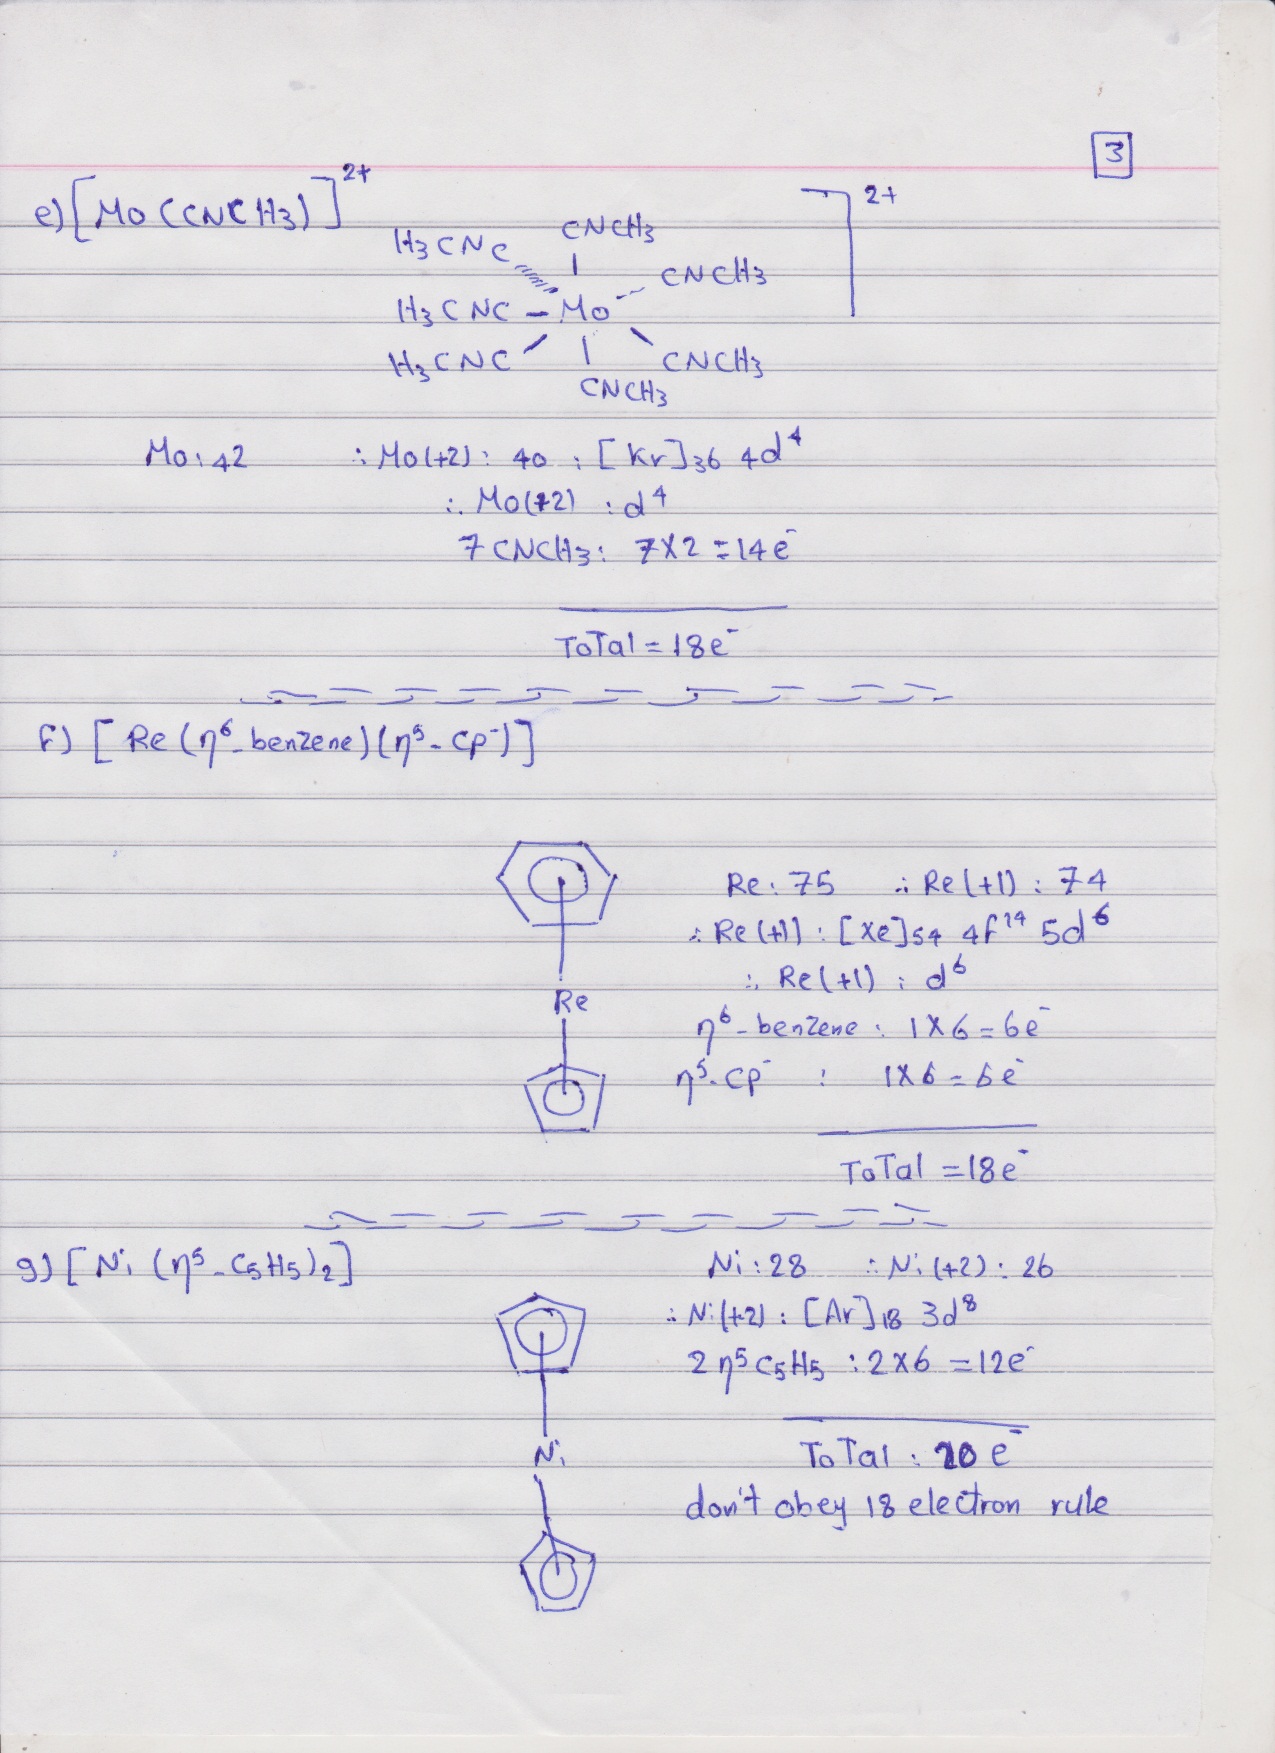 3
e) [Mo (CNCH3)]²⁺
]²⁺
H3CNC CNCH3
CNCH3
H3CNC - Mo
H3CNC CNCH3
CNCH3
Mo: 42 ∴ Mo(+2): 40 : [Kr]36 4d⁴
∴ Mo(+2) : d⁴
7 CNCH3: 7X2 = 14e⁻
ToTal = 18e⁻
f) [Re (η⁶-benzene)(η⁵-Cp⁻)]
Re: 75 ∴ Re(+1) : 74
∴ Re(+1) : [Xe]54 4f¹⁴ 5d⁶
∴ Re(+1) : d⁶
Re
η⁶-benzene : 1X6=6e⁻
η⁵-Cp⁻ : 1X6=6e⁻
ToTal =18e⁻
g) [Ni (η⁵-C5H5)2]
Ni: 28 ∴ Ni(+2): 26
∴ Ni(+2) : [Ar]18 3d⁸
2 η⁵C5H5 : 2X6 =12e⁻
Ni
ToTal : 20 e⁻
don't obey 18 electron rule